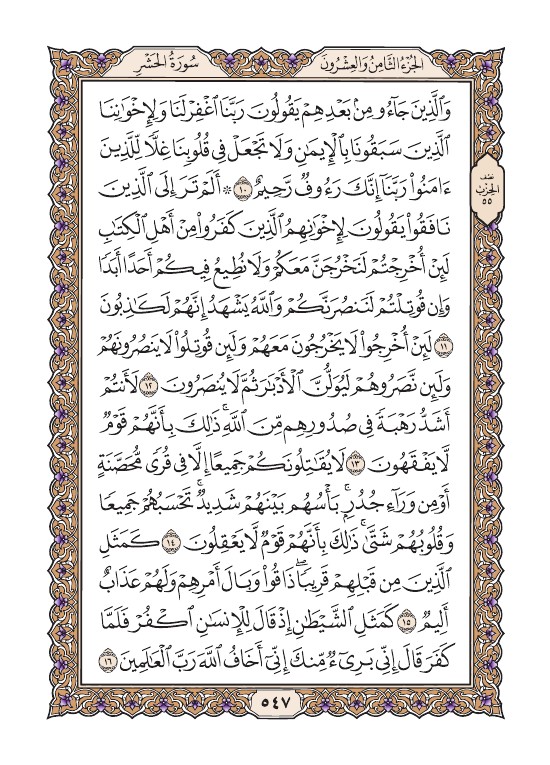 الجُزءُ الثَّامِنُ وَالعِشْرُونَ
سُورَةُ الحَشْرِ
وَٱلَّذِينَ جَآءُو مِنۢ بَعْدِهِمْ يَقُولُونَ رَبَّنَا ٱغْفِرْ لَنَا وَلِإِخْوَٰنِنَا
ٱلَّذِينَ سَبَقُونَا بِٱلْإِيمَٰنِ وَلَا تَجْعَلْ فِى قُلُوبِنَا غِلًّا لِّلَّذِينَ
ءَامَنُوا۟ رَبَّنَآ إِنَّكَ رَءُوفٌ رَّحِيمٌ ١٠ ۞ أَلَمْ تَرَ إِلَى ٱلَّذِينَ
نَافَقُوا۟ يَقُولُونَ لِإِخْوَٰنِهِمُ ٱلَّذِينَ كَفَرُوا۟ مِنْ أَهْلِ ٱلْكِتَٰبِ
لَئِنْ أُخْرِجْتُمْ لَنَخْرُجَنَّ مَعَكُمْ وَلَا نُطِيعُ فِيكُمْ أَحَدًا أَبَدًا
وَإِن قُوتِلْتُمْ لَنَنصُرَنَّكُمْ وَٱللَّهُ يَشْهَدُ إِنَّهُمْ لَكَٰذِبُونَ
١١ لَئِنْ أُخْرِجُوا۟ لَا يَخْرُجُونَ مَعَهُمْ وَلَئِن قُوتِلُوا۟ لَا يَنصُرُونَهُمْ
وَلَئِن نَّصَرُوهُمْ لَيُوَلُّنَّ ٱلْأَدْبَٰرَ ثُمَّ لَا يُنصَرُونَ ١٢ لَأَنتُمْ
أَشَدُّ رَهْبَةً فِى صُدُورِهِم مِّنَ ٱللَّهِ ۚ ذَٰلِكَ بِأَنَّهُمْ قَوْمٌ
لَّا يَفْقَهُونَ ١٣ لَا يُقَٰتِلُونَكُمْ جَمِيعًا إِلَّا فِى قُرًى مُّحَصَّنَةٍ
أَوْ مِن وَرَآءِ جُدُرٍۭ ۚ بَأْسُهُم بَيْنَهُمْ شَدِيدٌ ۚ تَحْسَبُهُمْ جَمِيعًا
وَقُلُوبُهُمْ شَتَّىٰ ۚ ذَٰلِكَ بِأَنَّهُمْ قَوْمٌ لَّا يَعْقِلُونَ ١٤ كَمَثَلِ
ٱلَّذِينَ مِن قَبْلِهِمْ قَرِيبًا ۖ ذَاقُوا۟ وَبَالَ أَمْرِهِمْ وَلَهُمْ عَذَابٌ
أَلِيمٌ ١٥ كَمَثَلِ ٱلشَّيْطَٰنِ إِذْ قَالَ لِلْإِنسَٰنِ ٱكْفُرْ فَلَمَّا
كَفَرَ قَالَ إِنِّى بَرِىٓءٌ مِّنكَ إِنِّىٓ أَخَافُ ٱللَّهَ رَبَّ ٱلْعَٰلَمِينَ ١٦
نصف
الحزب
٥٥
٥٤٧